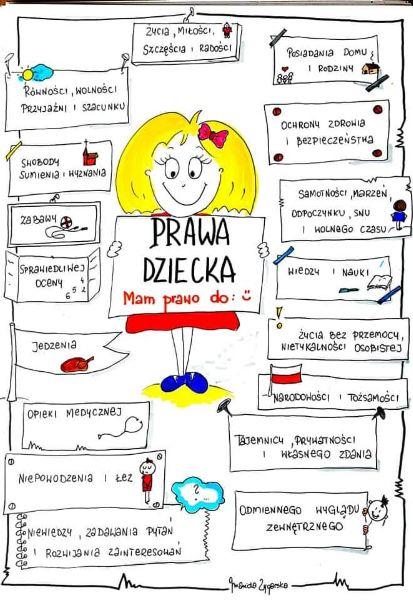 ŻYCIA, MIŁOŚCI,
SZCZĘŚCIA I RADOŚCI
POSIADANIA DOMU
I RODZINY
RÓWNOŚCI, WOLNOŚCI
PRZYJAŹNI I SZACUNKU
OCHRONY ZDROWIA
I BEZPIECZEŃSTWA
SWOBODY
SUMIENIA I WYZNANIA
SAMOTNOŚCI, MARZEŃ,
ODPOCZYNKU, SNU
I WOLNEGO CZASU
ZABAWY
PRAWA
DZIECKA
Mam prawo do:
SPRAWIEDLIWEJ
OCENY
6 5 4 2
WIEDZY I NAUKI
JEDZENIA
!
ŻYCIA BEZ PRZEMOCY,
NIETYKALNOŚCI OSOBISTEJ
NARODOWOŚCI I TOŻSAMOŚCI
OPIEKI MEDYCZNEJ
TAJEMNICY, PRYWATNOŚCI
I WŁASNEGO ZDANIA
NIEPOWODZENIA I ŁEZ
?
ODMIENNEGO WYGLĄDU
ZEWNĘTRZNEGO
NIEWIEDZY, ZADAWANIA PYTAŃ
I ROZWIJANIA ZAINTERESOWAŃ